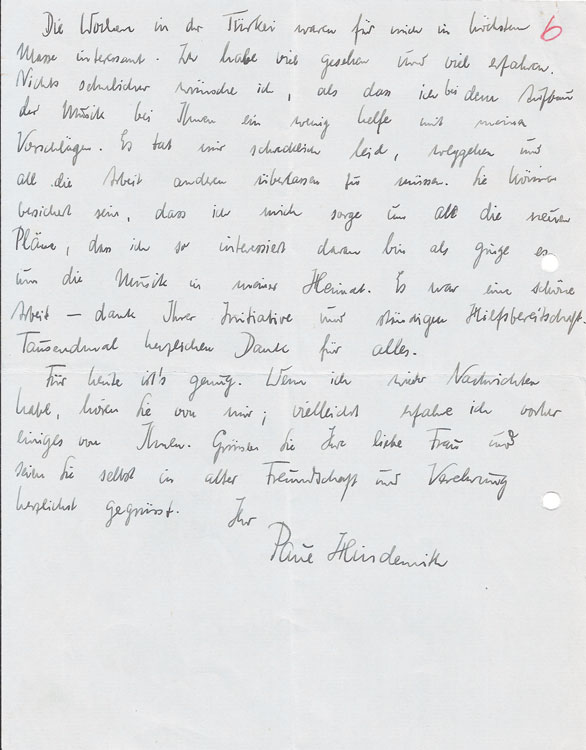 Die Wochen in der Türkei waren für mich in höchstem 6
Masse interessant. Ich habe viel gesehen und viel erfahren.
Nichts sehnlicher wünsche ich, als dass ich bei dem Aufbau
der Musik bei Ihnen ein wenig helfe mit meinen
Vorschlägen. Es tat mir schrecklich leid, weggehen und
all die Arbeit anderen überlassen zu müssen. Sie können
versichert sein, dass ich mich sorge um all die neuen
Pläne, dass ich so interessiert daran bin als ginge es
um die Musik in meiner Heimat. Es war eine schöne
Arbeit – dank Ihrer Initiative und ständigen Hilfsbereitschaft.
Tausendmal herzlichen Dank für alles.
Für heute ist's genug. Wenn ich wieder Nachrichten
habe, hören Sie von mir; vielleicht erfahre ich vorher
einiges von Ihnen. Grüssen Sie Ihre liebe Frau und
seien Sie selbst in alter Freundschaft und Verehrung
herzlichst gegrüsst. Ihr
Paul Hindemith